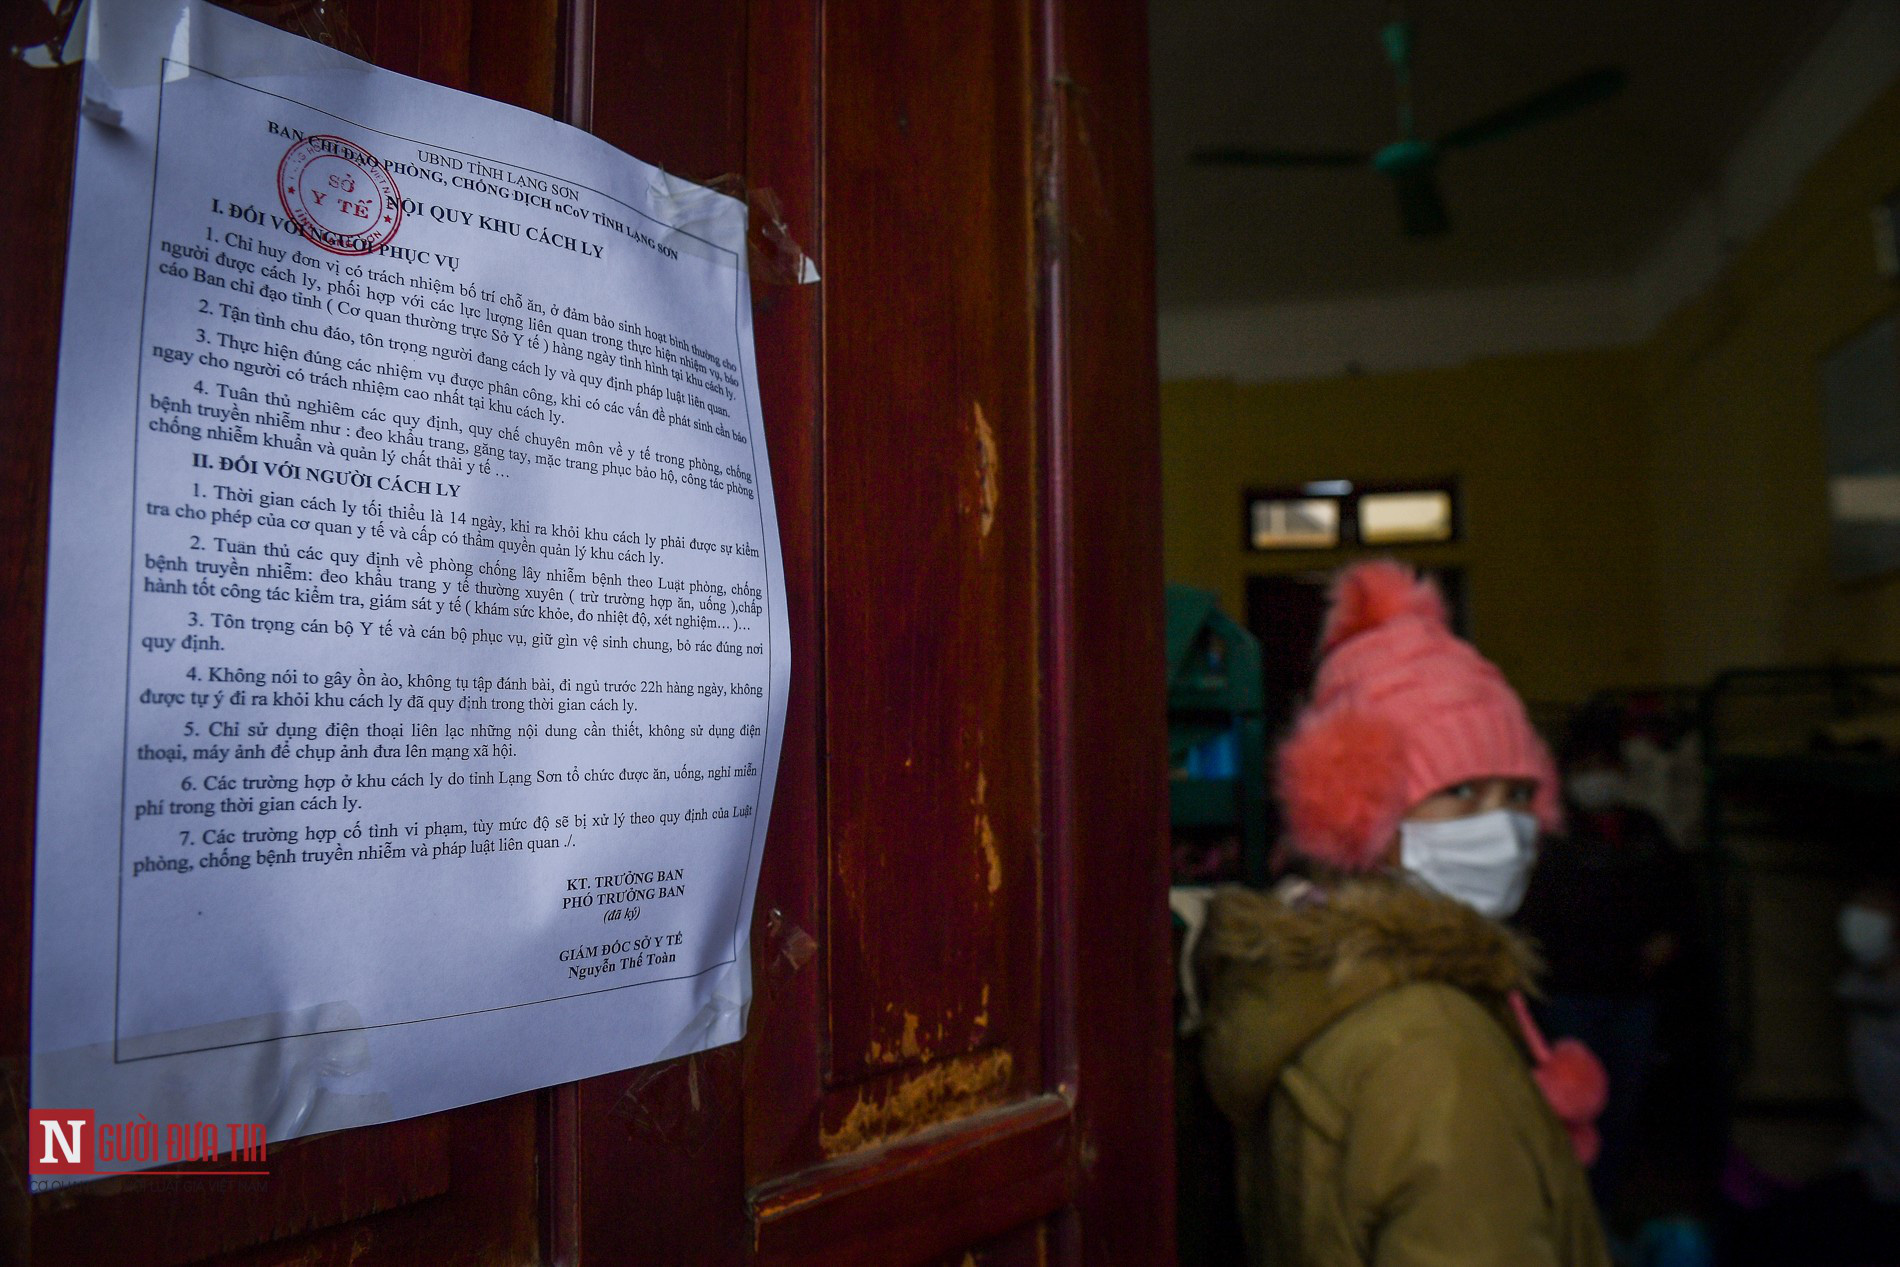 UBND TỈNH LẠNG SƠN
BAN CHỈ ĐẠO PHÒNG, CHỐNG DỊCH nCoV TỈNH LẠNG SƠN
NỘI QUY KHU CÁCH LY
SỞ
Y TẾ
I. ĐỐI VỚI NGƯỜI PHỤC VỤ
1. Chỉ huy đơn vị có trách nhiệm bố trí chỗ ăn, ở đảm bảo sinh hoạt bình thường cho
người được cách ly, phối hợp với các lực lượng liên quan trong thực hiện nhiệm vụ, báo
cáo Ban chỉ đạo tỉnh ( Cơ quan thường trực Sở Y tế ) hàng ngày tình hình tại khu cách ly.
2. Tận tình chu đáo, tôn trọng người đang cách ly và quy định pháp luật liên quan.
3. Thực hiện đúng các nhiệm vụ được phân công, khi có các vấn đề phát sinh cần báo
ngay cho người có trách nhiệm cao nhất tại khu cách ly.
4. Tuân thủ nghiêm các quy định, quy chế chuyên môn về y tế trong phòng, chống
bệnh truyền nhiễm như : đeo khẩu trang, găng tay, mặc trang phục bảo hộ, công tác phòng
chống nhiễm khuẩn và quản lý chất thải y tế ...
II. ĐỐI VỚI NGƯỜI CÁCH LY
1. Thời gian cách ly tối thiểu là 14 ngày, khi ra khỏi khu cách ly phải được sự kiểm
tra cho phép của cơ quan y tế và cấp có thẩm quyền quản lý khu cách ly.
2. Tuân thủ các quy định về phòng chống lây nhiễm bệnh theo Luật phòng, chống
bệnh truyền nhiễm: đeo khẩu trang y tế thường xuyên ( trừ trường hợp ăn, uống ),chấp
hành tốt công tác kiểm tra, giám sát y tế ( khám sức khỏe, đo nhiệt độ, xét nghiệm... )...
3. Tôn trọng cán bộ Y tế và cán bộ phục vụ, giữ gìn vệ sinh chung, bỏ rác đúng nơi
quy định.
4. Không nói to gây ồn ào, không tụ tập đánh bài, đi ngủ trước 22h hàng ngày, không
được tự ý đi ra khỏi khu cách ly đã quy định trong thời gian cách ly.
5. Chỉ sử dụng điện thoại liên lạc những nội dung cần thiết, không sử dụng điện
thoại, máy ảnh để chụp ảnh đưa lên mạng xã hội.
6. Các trường hợp ở khu cách ly do tỉnh Lạng Sơn tổ chức được ăn, uống, nghỉ miễn
phí trong thời gian cách ly.
7. Các trường hợp cố tình vi phạm, tùy mức độ sẽ bị xử lý theo quy định của Luật
phòng, chống bệnh truyền nhiễm và pháp luật liên quan ./.
KT. TRƯỞNG BAN
PHÓ TRƯỞNG BAN
(đã ký)
GIÁM ĐỐC SỞ Y TẾ
Nguyễn Thế Toàn
NGƯỜI ĐƯA TIN